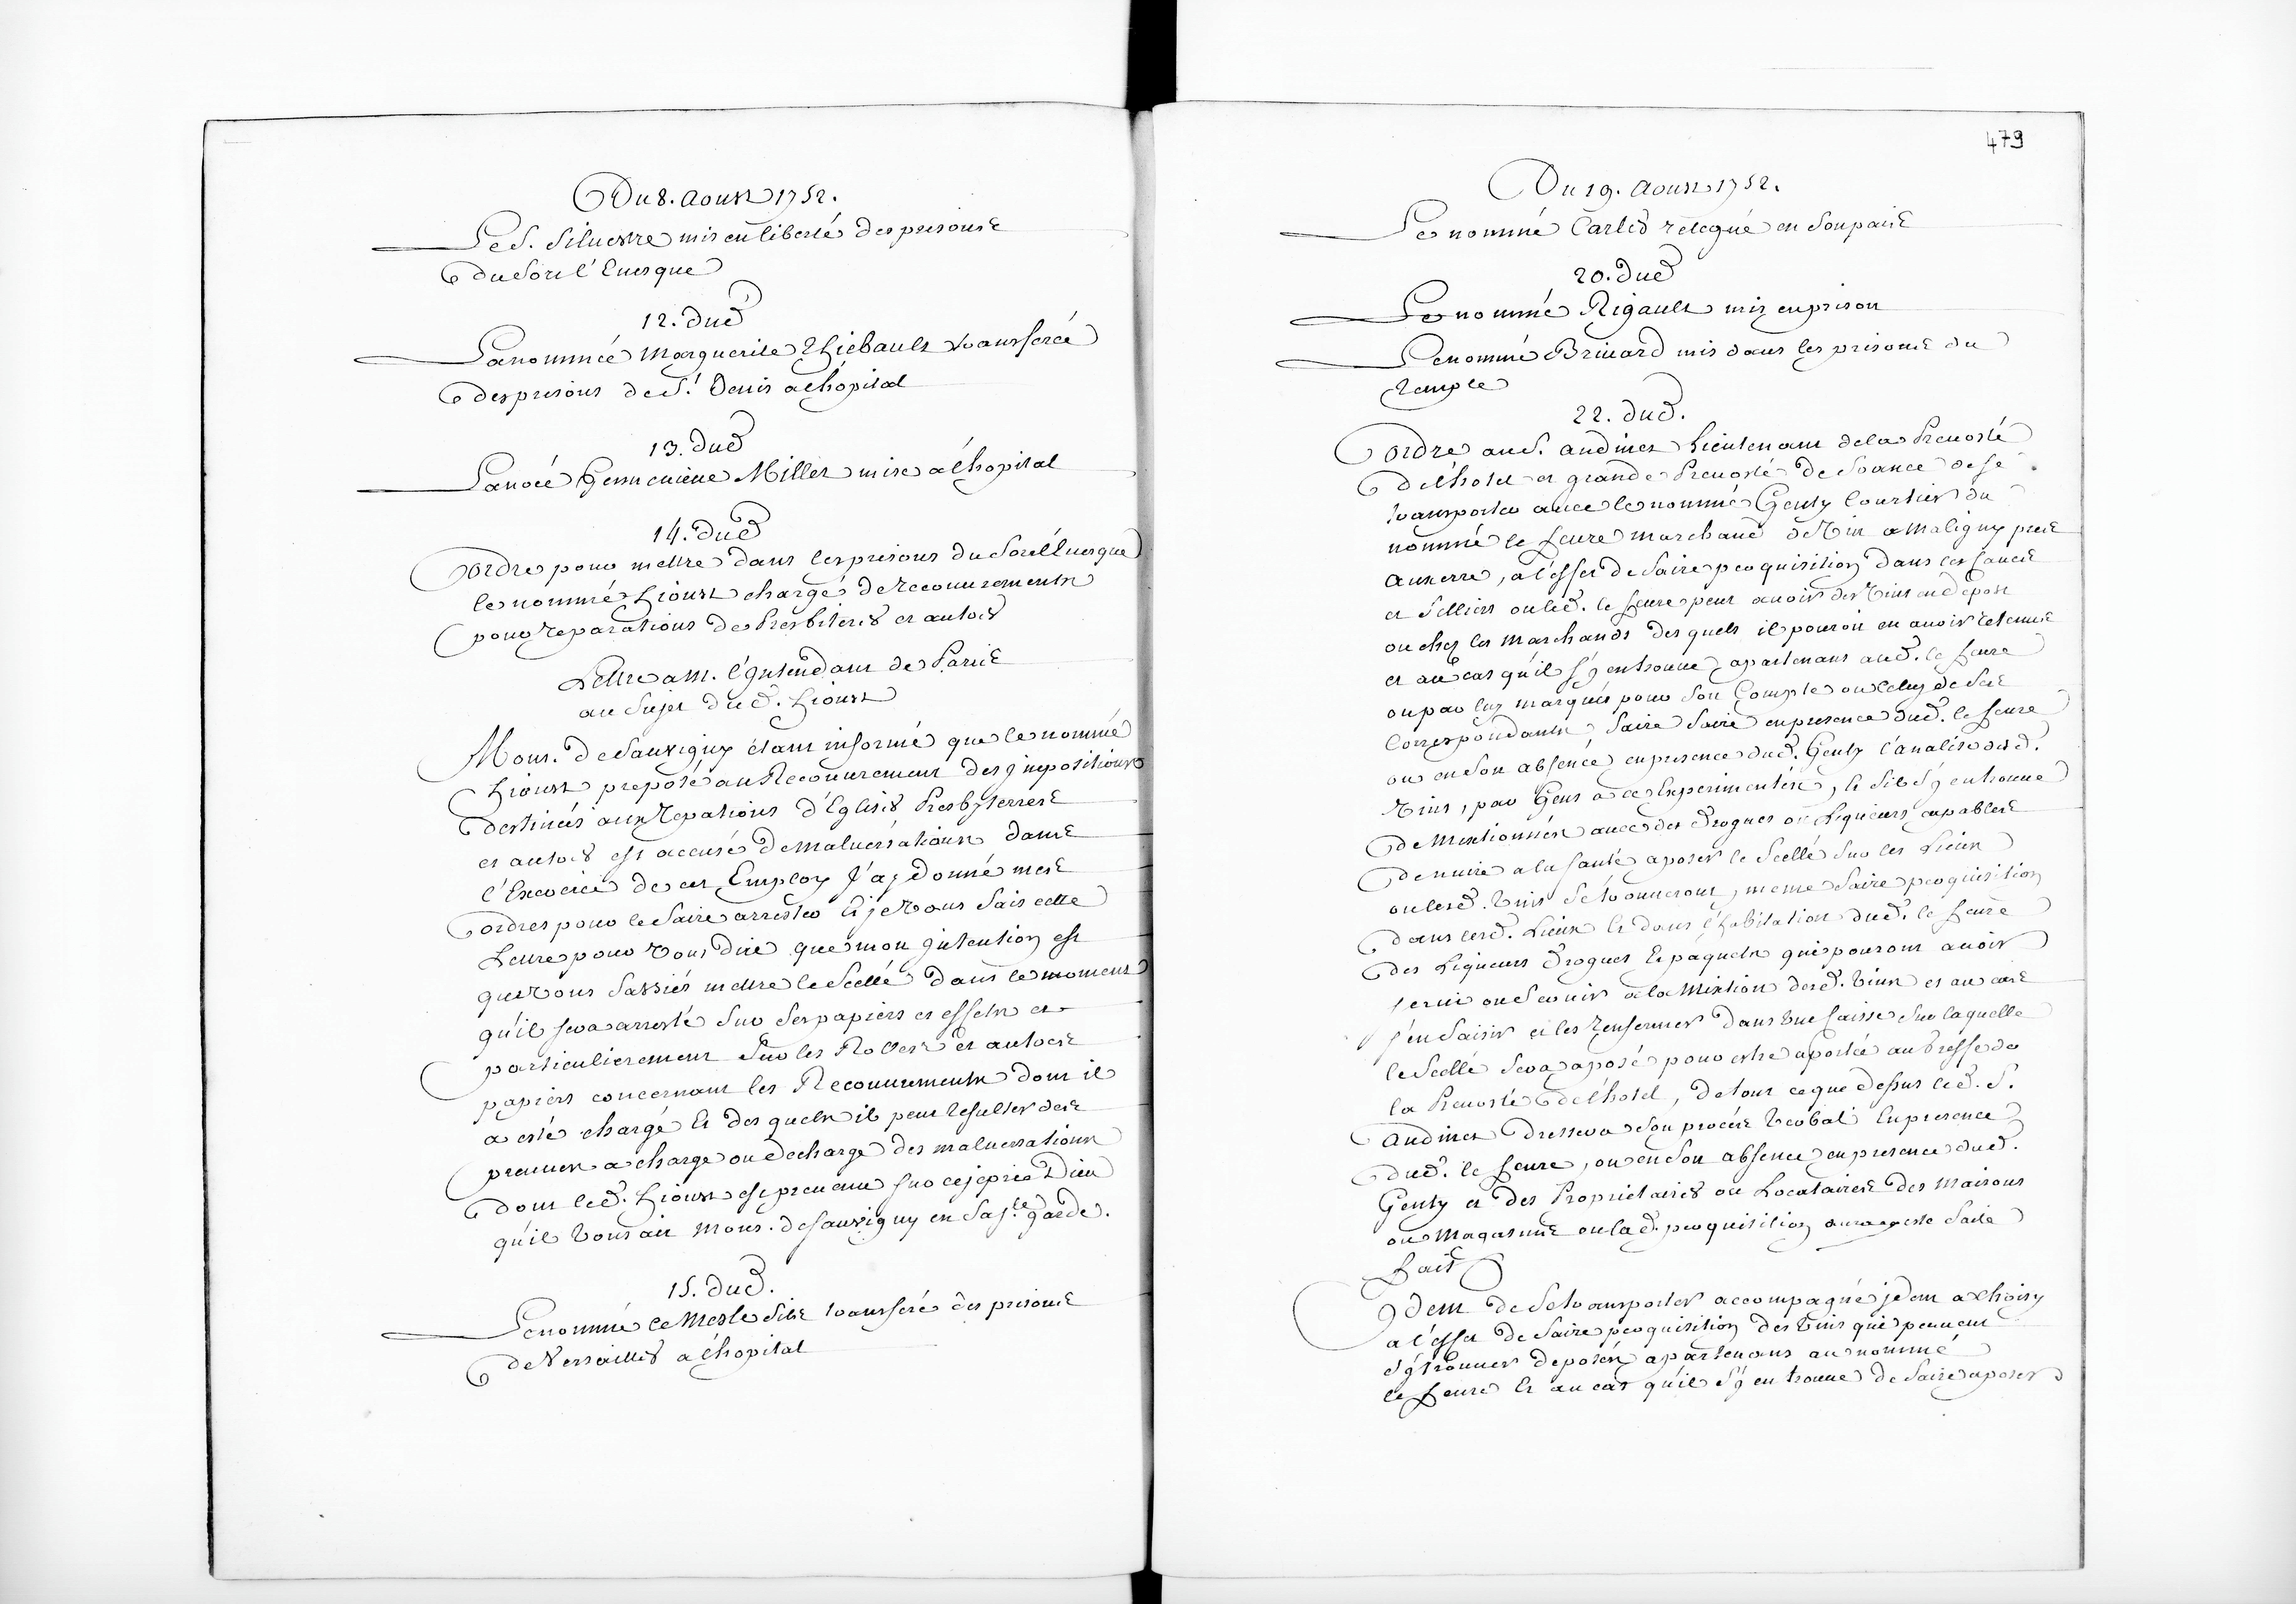 Du 8. Aoust 1752.
Le S. Siluestre mis en liberté des prisons
du fort l'Euesque
12. dud
La nommée Marguerite Thiebault transferée
des prisons de St. Denis a l'hôpital
13. dud
La nōée Genneuieue Millet mise a l'hopital
14. dud
Ordre pour mettre dans les prisons du fort l'Euesque
le nommé Lioust chargé de recouurements
pour reparations de Presbiteres et autres
Lettre a M. l'Intendant de Paris
au Sujet dud. Lioust
Mons. de Sauvigny étant informé que le nommé
Lioust preposé au Recouurement des Impositions
destinées aux repations d'Eglises Presbyterres
et autres est accusé de maluersations dans
l'Exercice de cet Employ J'ay donné mes
ordres pour le faire arrester Et je vous fais cette
Lettre pour vous dire que mon Intention est
que vous fassiés mettre le Scellé dans le moment
qu'il sera arresté sur ses papiers et effets et
particulierement sur les Rolles et autres
papiers concernant les Recouurements dont il
a esté chargé Et des quels il peut resulter des
preuues a charge ou decharge des maluersations
dont led. Lioust est preuenu sur ce je prie Dieu
qu'il vous ait Mons. de Sauvigny en sa ste. garde.
15. dud.
Le nommé le Mesle fils transferé des prisons
de Versailles a l'hopital
479
Du 19. Aoust 1752.
Le nommé Carles relegué en son pais
20. dud
Le nommé Rigault mis en prison
Le nommé Briuard mis dans les prisons du
Temple
22. dud.
Ordre au S. Andinet Lieutenant de la Preuosté
de l'hotel et grande Preuosté de france de se
transporter auec le nommé Genty Courtier du
nommé le feure marchand de Vin a Maligny pres
Auxerre, a l'effet de faire perquisition dans les caues
et Selliers ou led. le feure peut auoir des Vins en depost
ou chez les Marchands des quels il pouroit en auoir retenus
et au cas qu'il s'y en trouue apartenans aud. le feure
ou par luy marqués pour son Compte ou celuy de ses
Correspondants faire faire en presence dud. le feure
ou en son absence en presence dud. Genty l'analise desd.
Vins, par Gens a ce Experimentés, Et s'il s'y en trouue
de Mixtionnés auec des drogues ou Liqueurs capables
de nuire a la santé aposer le Scellé sur les Lieux
ou lesd. Vins se trouueront, meme faire perquisition
dans lesd. Lieux Et dans l'habitation dud. le feure
des Liqueurs drogues Et paquets qui pouront auoir
serui ou seruir a la Mixtion desd. Vins et au cas
s'en saisir et les renfermer dans vne Caisse sur laquelle
le Scellé sera aposé pour estre aportée au Greffe de
la Preuosté de l'hotel, de tout ce que dessus led. S.
Andinet dressera son procés Verbal En presence
dud. le feure, ou en son absence en presence dud.
Genty et des Proprietaires ou Locataires des Maisons
ou Magasins ou lad. perquisition aura esté faite
Fait
Idem de se transporter accompagné idem a Choisy
a l'effet de faire perquisition des Vins qui peuuent
s'y trouuer deposés apartenans au nommé
le feure Et au cas qu'il s'y en trouue de faire aposer